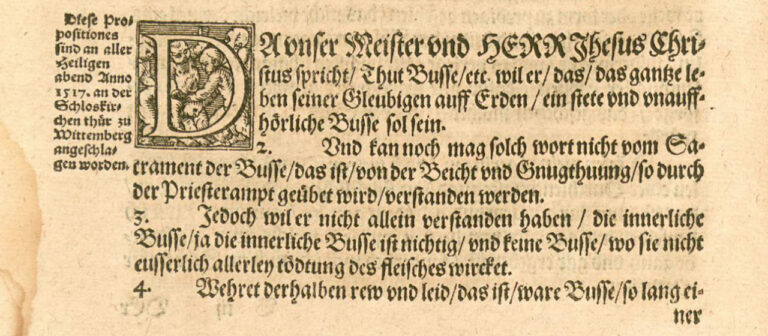 Diese Pro-
positiones
sind an aller
Heiligen
abend Anno
1517. an der
Schloskir-
chen thür zu
Wittemberg
angeschla-
gen worden.
DA vnser Meister vnd HERR Jhesus Chri-
stus spricht/ Thut Busse/etc. wil er/ das/ das gantze le-
ben seiner Gleubigen auff Erden / ein stete vnd vnauff-
hörliche Busse sol sein.
2. Vnd kan noch mag solch wort nicht vom Sa-
crament der Busse/das ist/von der Beicht vnd Gnugthuung/so durch
der Priesterampt geübet wird/verstanden werden.
3. Jedoch wil er nicht allein verstanden haben / die innerliche
Busse/ja die innerliche Busse ist nichtig/ vnd keine Busse/ wo sie nicht
eusserlich allerley tödtung des fleisches wircket.
4. Wehret derhalben rew vnd leid/das ist/ware Busse/so lang ei-
ner